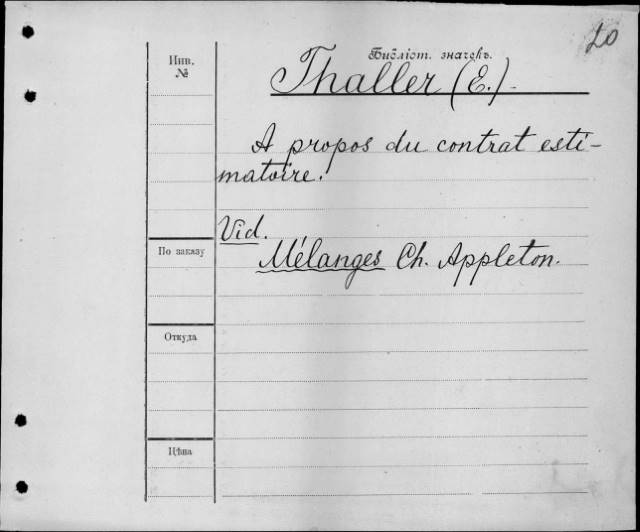 20
Инв.
№
Библіот. значекъ.
Thaller (E.).
A propos du contrat esti-
matoire.
Vid.
Mélanges Ch. Appleton.
По заказу
Откуда
Цѣна